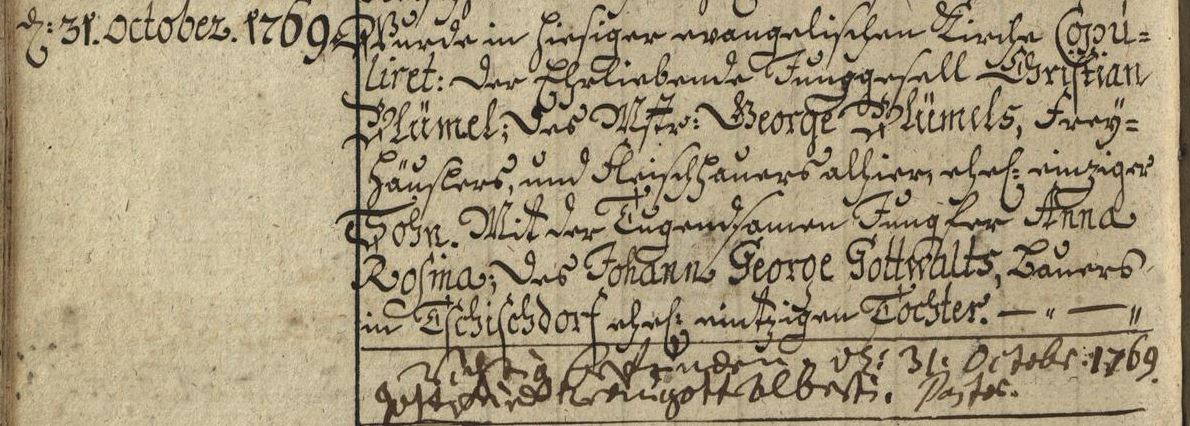 d: 31. October. 1769.
Wurde in hiesiger evangelischen Kirche Copu=
liret: der Ehrliebende Junggesell Christian
Blümel; des Mstr: George Blümels, Frey=
häuslers, und Fleischhauers alhier, ehel: eintziger
Sohn. Mit der Tugendsamen Jungfer Anna
Rosina; des Johann George Gottwalts, Bauers
in Tschischdorf ehel: eintzigen Tochter. — " — "
Richtig befunden, d: 31. Octobr: 1769.
Pastor.